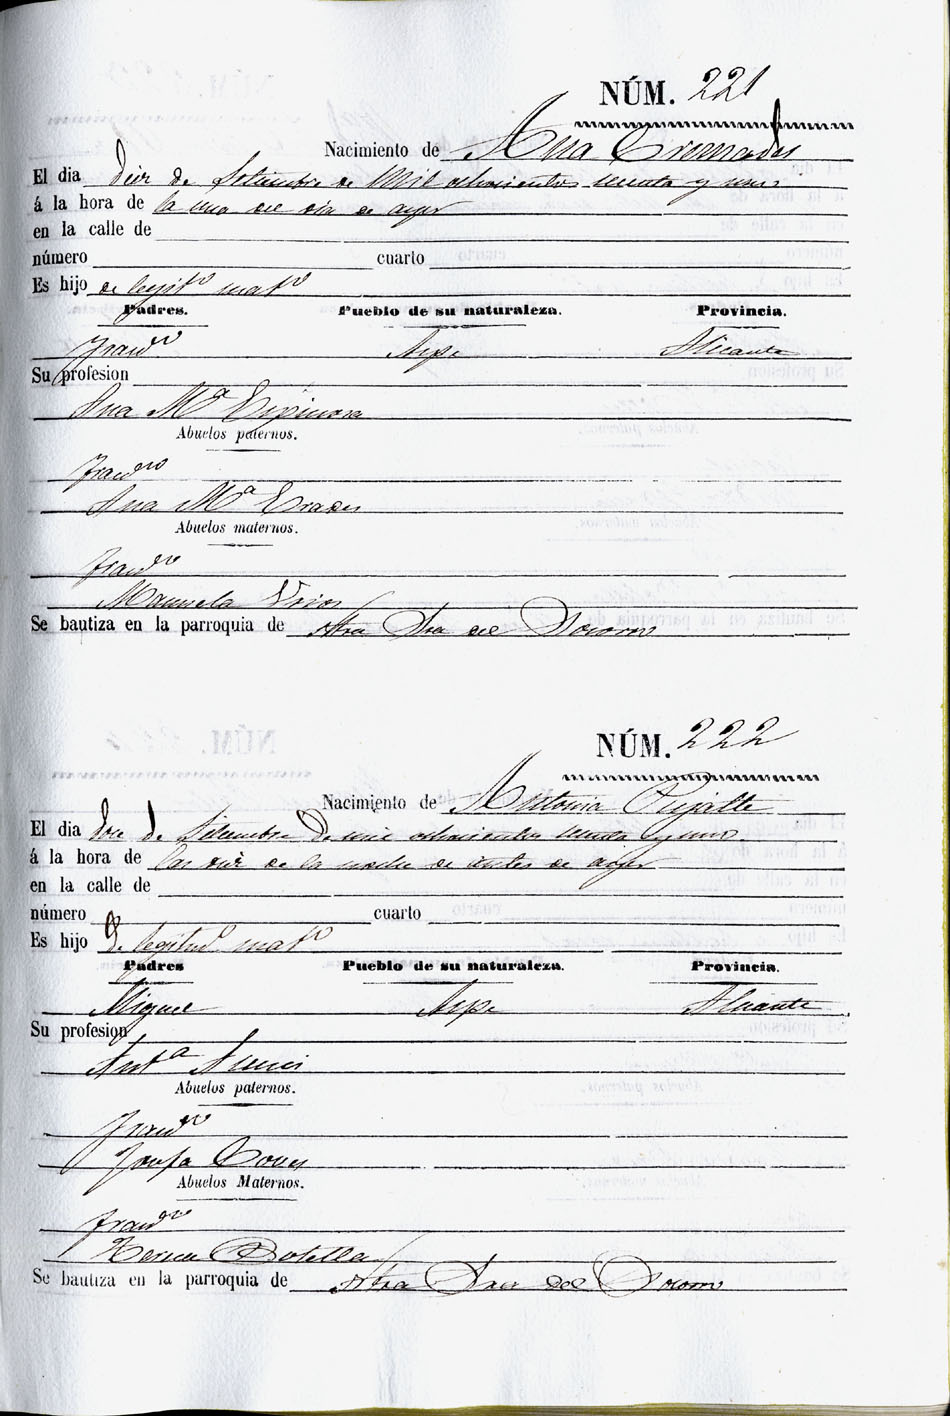 NÚM. 221
Nacimiento de Ana Cremades
El dia diez de Setiembre de Mil ochocientos sesenta y uno
á la hora de la una del dia de ayer
en la calle de
número cuarto
Es hijo de legito mato
Padres. Pueblo de su naturaleza. Provincia.
Franco Aspe Alicante
Su profesion
Ana Ma Espinosa
Abuelos paternos.
Franco
Ana Ma Prades
Abuelos maternos.
Franco
Manuela
Se bautiza en la parroquia de Ntra Sra del Socorro
NÚM. 222
Nacimiento de Antonia Pujalte
El dia doce de Setiembre de mil ochocientos sesenta y uno
á la hora de las diez de la noche de antes de ayer
en la calle de
número cuarto
Es hijo de legitmo mato
Padres Pueblo de su naturaleza. Provincia.
Miguel Aspe Alicante
Su profesion
Anta
Abuelos paternos.
Franco
Josefa
Abuelos Maternos.
Franco
Teresa Botella
Se bautiza en la parroquia de Ntra Sra del Socorro